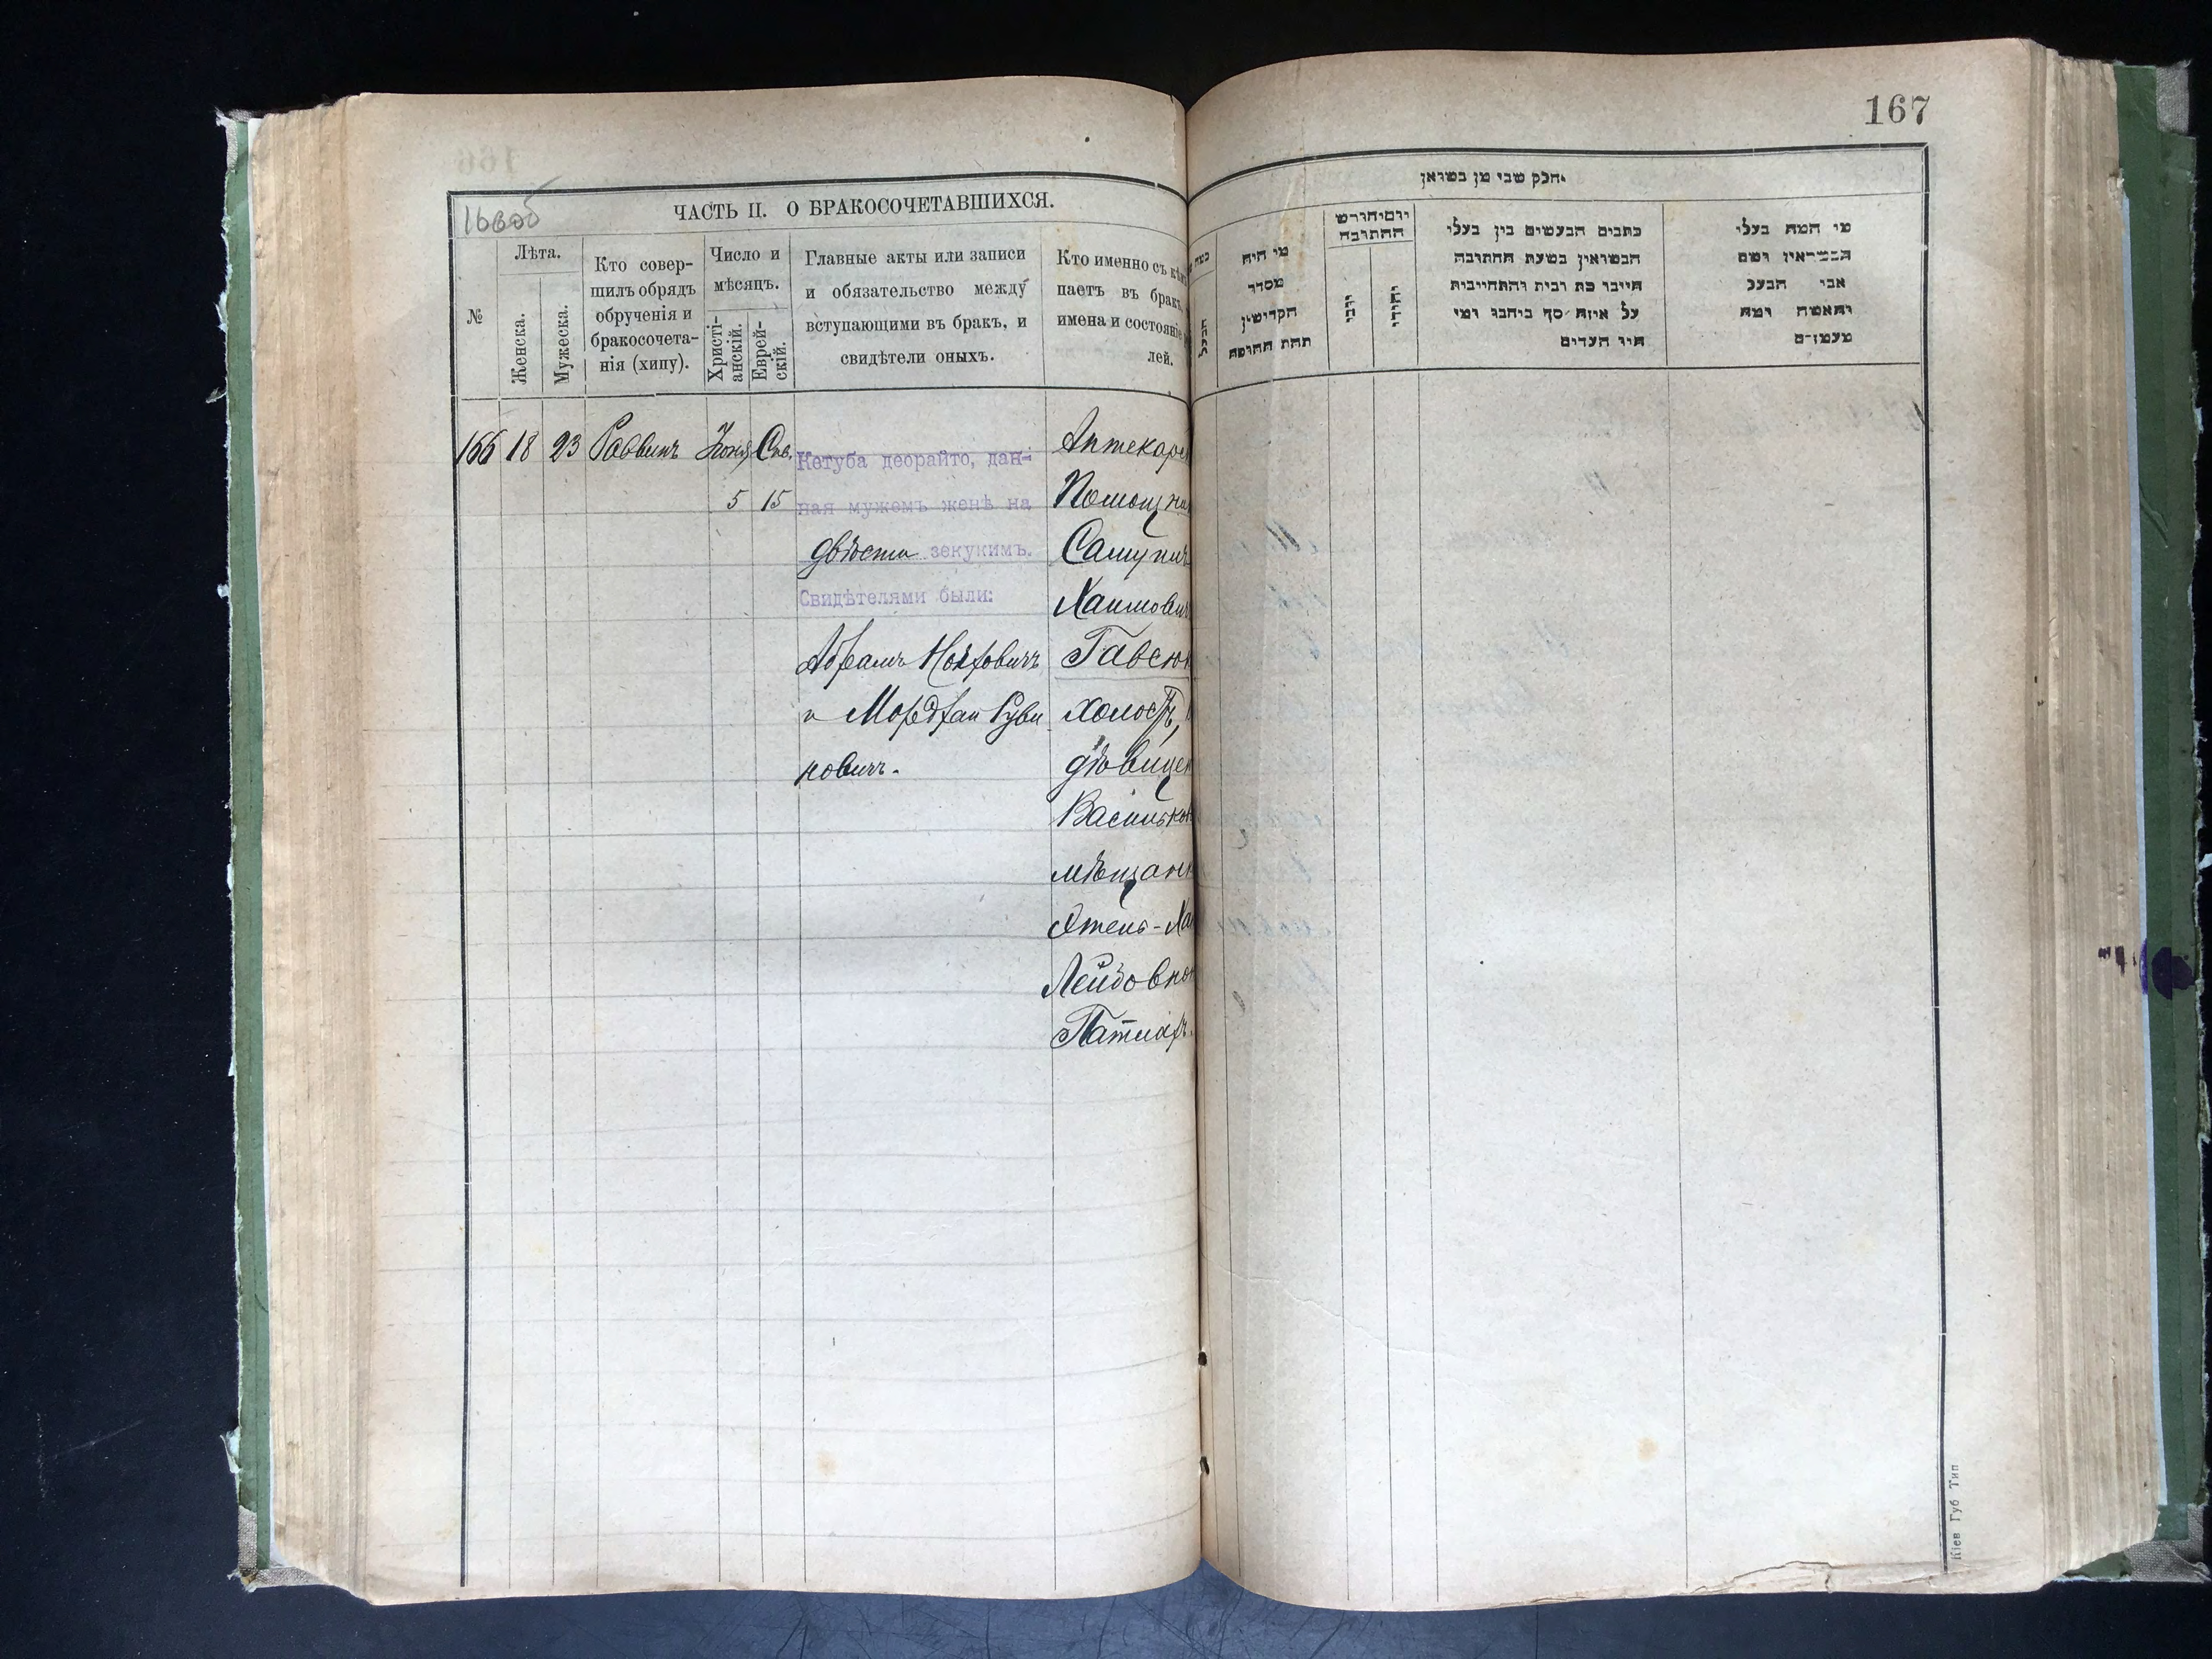 167
166об
ЧАСТЬ II. О БРАКОСОЧЕТАВШИХСЯ.
№
Лѣта.
Женска.
Мужеска.
Кто совер-
шилъ обрядъ
обрученія и
бракосочета-
нія (хипу).
Число и
мѣсяцъ.
Христі-
анскій.
Еврей-
скій.
Главные акты или записи
и обязательство между
вступающими въ бракъ, и
свидѣтели оныхъ.
Кто именно съ кѣм
паетъ въ бракъ
имена и состояніе
лей.
166 18 23 Раввинъ Іюня Сив.
5 15
Кетуба деорайто, дан-
ная мужемъ женѣ на
двѣсти зекукимъ.
Свидѣтелями были:
Абрамъ
и Мордхай Руви
новичъ.
Аптекарс
Помощни
Хаимович
Гавсюк
холостъ,
дѣвицею
Васильков
мѣщанк
Этель-Ха
Лейбовно
מי היה
מסדר
הקדושין
תחת החופה
יום וחודש
החתונה
כתבים הנעשים בין בעלי
הנשואין בשעת החתונה
חייבו כת ובית והתחייבות
על איזה סך ניתנו ומי
היו העדים
מי המה בעלי
הנשואין ושם
אבי הבעל
והאשה ומה
מעמדם
Кіев Губ Тип